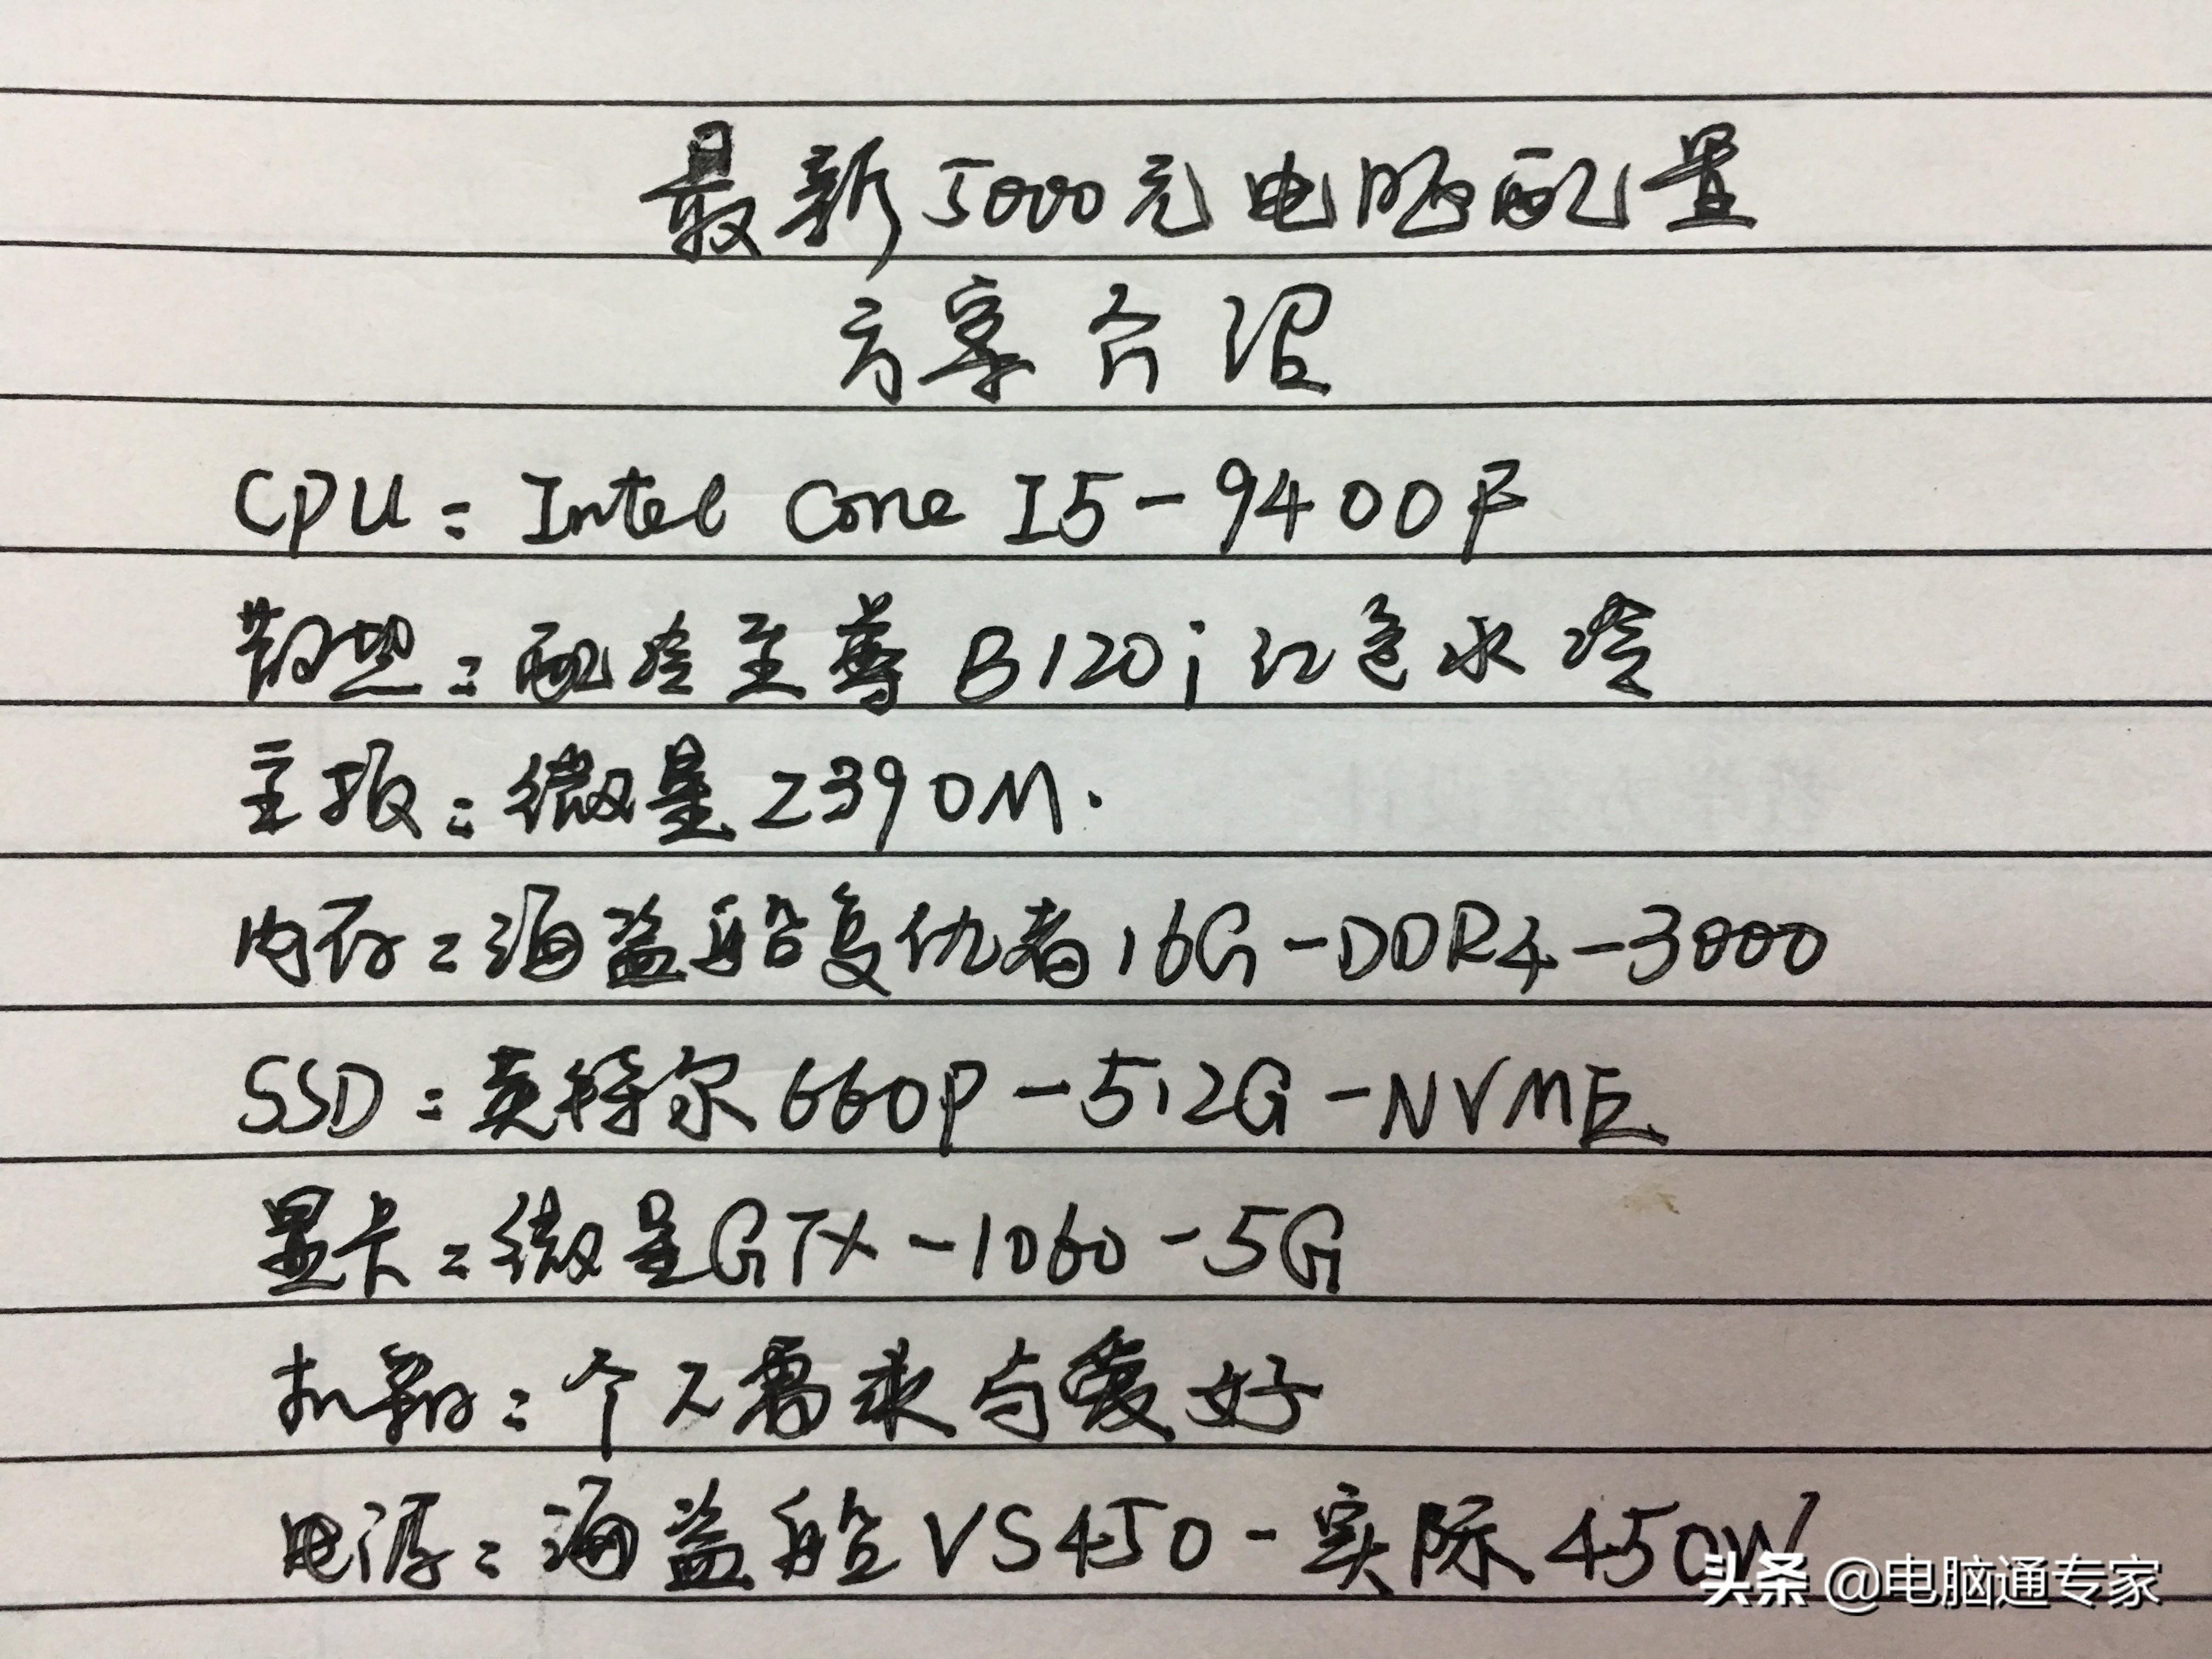 最新5000元电脑配置
分享介绍
CPU：Intel Core I5-9400F
散热：酷冷至尊B120i红色水冷
主板：微星Z390M.
内存：海盗船复仇者16G-DDR4-3000
SSD：英特尔660P-512G-NVME
显卡：微星GTX-1060-5G
机箱：个人需求与爱好
电源：海盗船VS450-实际450W
头条 @电脑通专家